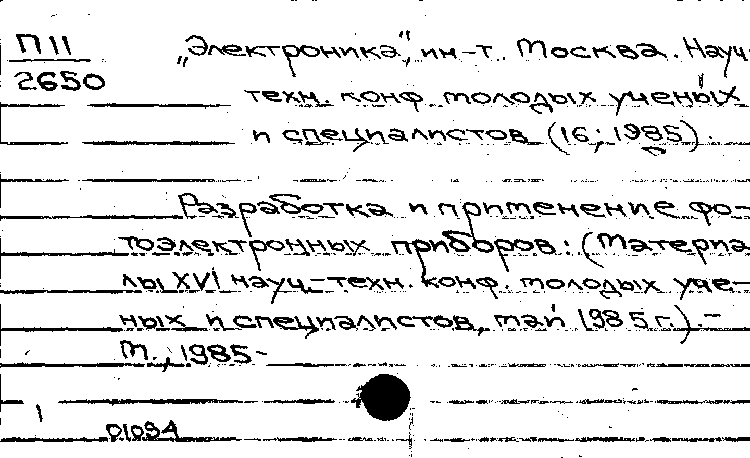 П 11
2650
„Электроника“, ин-т. Москва. Науч.
техн. конф. молодых ученых
и специалистов (16; 1985).
Разработка и применение фо-
тоэлектронных приборов: (Материа-
лы XVI науч.-техн. конф. молодых уче-
ных и специалистов, май 1985 г.).-
М., 1985-
1
01094